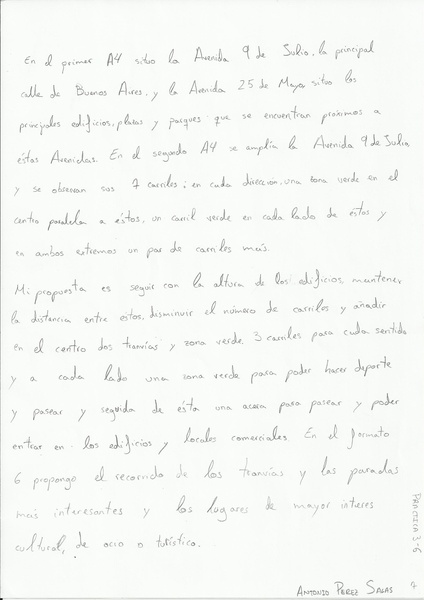 En el primer A4 situo la Avenida 9 de Julio, la principal
calle de Buenos Aires, y la Avenida 25 de Mayo situo los
principales edificios, plazas y parques que se encuentran próximos a
éstas Avenidas. En el segundo A4 se amplía la Avenida 9 de Julio
y se observan sus 7 carriles; en cada dirección, una zona verde en el
centro paralela a éstos, un carril verde en cada lado de éstos y
en ambos extremos un par de carriles más.
Mi propuesta es seguir con la altura de los edificios, mantener
la distancia entre estos, disminuir el número de carriles y añadir
en el centro dos tranvías y zona verde. 3 carriles para cada sentido
y a cada lado una zona verde para poder hacer deporte
y pasear y seguida de ésta una acera para pasear y poder
entrar en los edificios y locales comerciales. En el formato
6 propongo el recorrido de los tranvías y las paradas
más interesantes y los lugares de mayor interes
cultural, de ocio o turístico.
PRACTICA 3-6
ANTONIO PEREZ SALAS